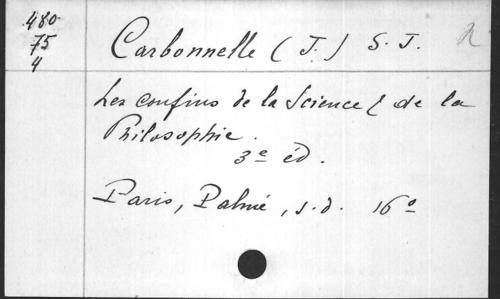 480
75
4
Carbonnelle (J.) S. J.
Les confins de la Science & de la
Philosophie.
3e éd.
Paris, Palmé, s.d. 16o